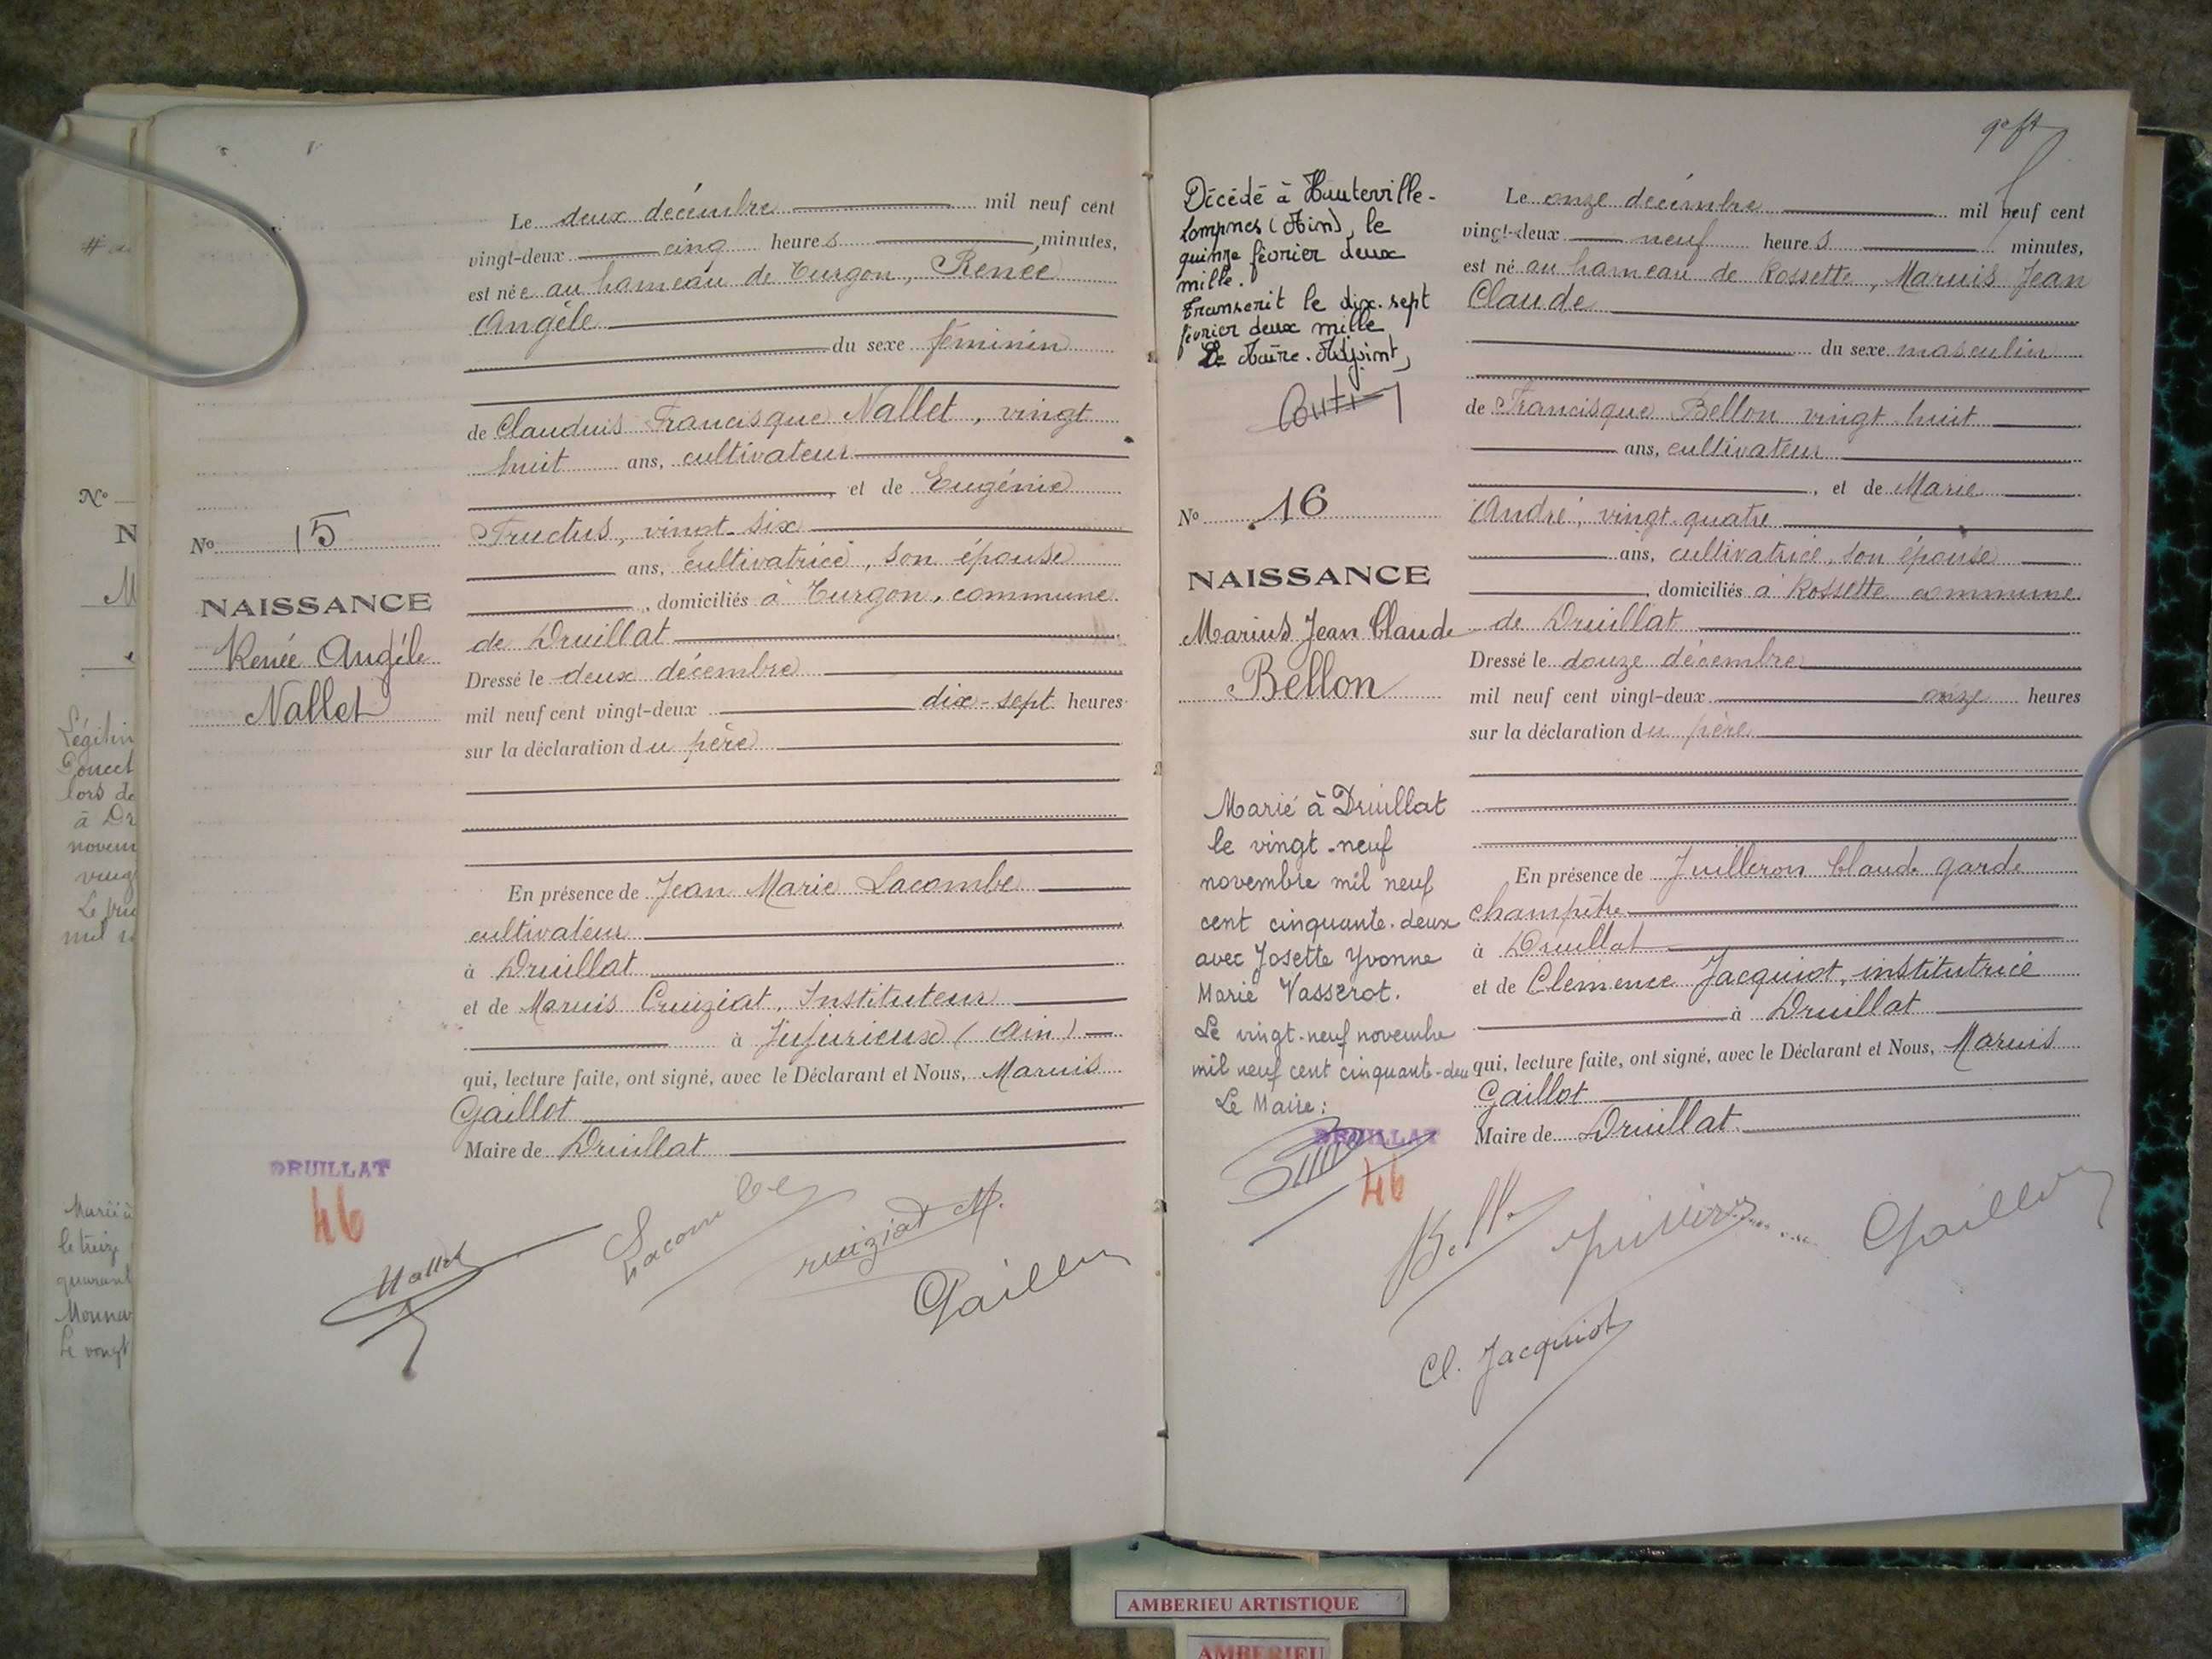 Le deux décembre mil neuf cent
vingt-deux cinq heures minutes,
est née au hameau de Turgon, Renée
Angèle
du sexe féminin
de Claudius Francisque Nallet, vingt
huit ans, cultivateur
, et de Eugénie
Fructus, vingt-six
ans, cultivatrice, son épouse
, domiciliés à Turgon, commune
de Druillat
Dressé le deux décembre
mil neuf cent vingt-deux dix-sept heures
sur la déclaration du père
En présence de Jean Marie Lacombe
cultivateur
à Druillat
et de Marius Cruiziat, Instituteur
à Jujurieux (Ain)
qui, lecture faite, ont signé, avec le Déclarant et Nous, Marius
Gaillot
Maire de Druillat
No 15
NAISSANCE
Renée Angèle
Nallet
DRUILLAT
46
Nallet
Lacombe
Cruiziat M.
Gaillot
No
N
M
Décédé à Hauteville-
Lompnes (Ain), le
quinze février deux
mille.
Transcrit le dix-sept
février deux mille
Le Maire-Adjoint,
No 16
NAISSANCE
Marius Jean Claude
Bellon
Marié à Druillat
le vingt-neuf
novembre mil neuf
cent cinquante-deux
avec Josette Yvonne
Marie Vasserot.
Le vingt-neuf novembre
mil neuf cent cinquante-deu
Le Maire:
DRUILLAT
46
Le onze décembre mil neuf cent
vingt-deux neuf heures minutes,
est né au hameau de Rossette, Marius Jean
Claude
du sexe masculin
de Francisque Bellon vingt huit
ans, cultivateur
, et de Marie
André, vingt-quatre
ans, cultivatrice, son épouse
, domiciliés à Rossette commune
de Druillat
Dressé le douze décembre
mil neuf cent vingt-deux onze heures
sur la déclaration du père
En présence de Juilleron Claude garde
champêtre
à Druillat
et de Clémence Jacquiot, institutrice
à Druillat
qui, lecture faite, ont signé, avec le Déclarant et Nous, Marius
Gaillot
Maire de Druillat
Gaillot
Cl. Jacquiot
AMBERIEU ARTISTIQUE
AMBERIEU